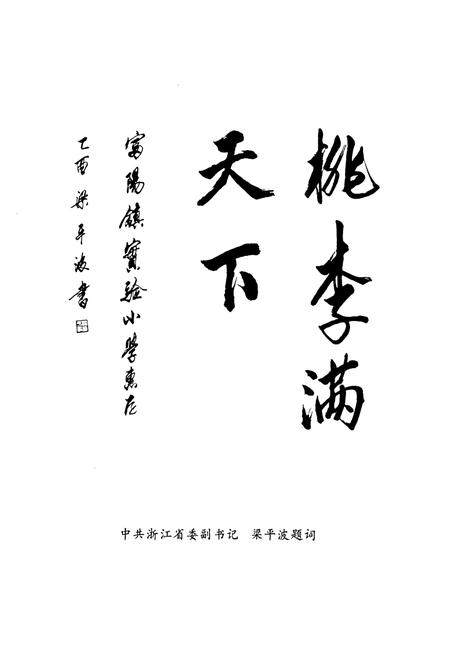 桃李满
天下
富陽鎮實验小學惠存
乙酉 梁平波書
中共浙江省委副书记 梁平波题词